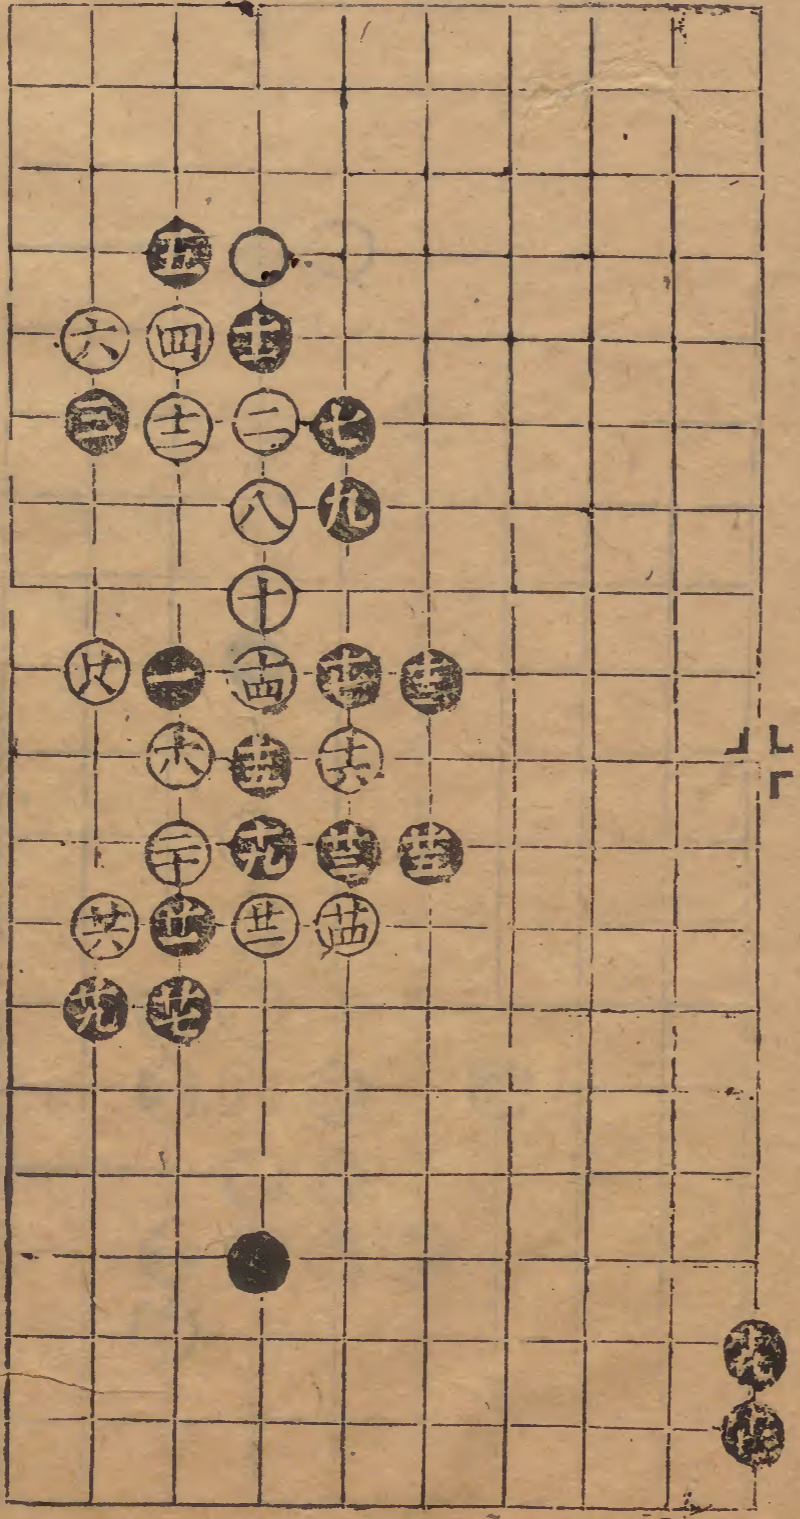 五
六 四 十一
三 十二 二 七
八 九
十
廿八 一 十四 十七 十三
十八 十五 十六
二十 十九 廿三 廿五
廿六 廿一 廿二 廿四
廿九 廿七